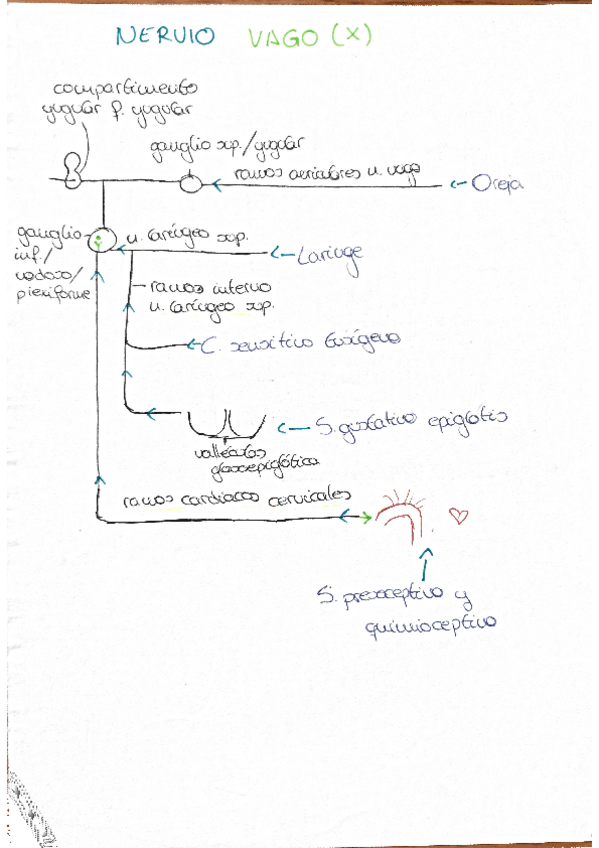 NERVIO VAGO (X)
compartimento
yugular f. yugular
ganglio sup./yugular
ramos auriculares n. vago
Oreja
ganglio
inf./
nodoso/
plexiforme
n. laríngeo sup.
Laringe
ramos interno
n. laríngeo sup.
C. sensitivo faríngeo
S. gustativo epiglotis
valléculas
glosoepiglótica
ramos cardiaco cervicales
S. presoceptivo y
quimioceptivo